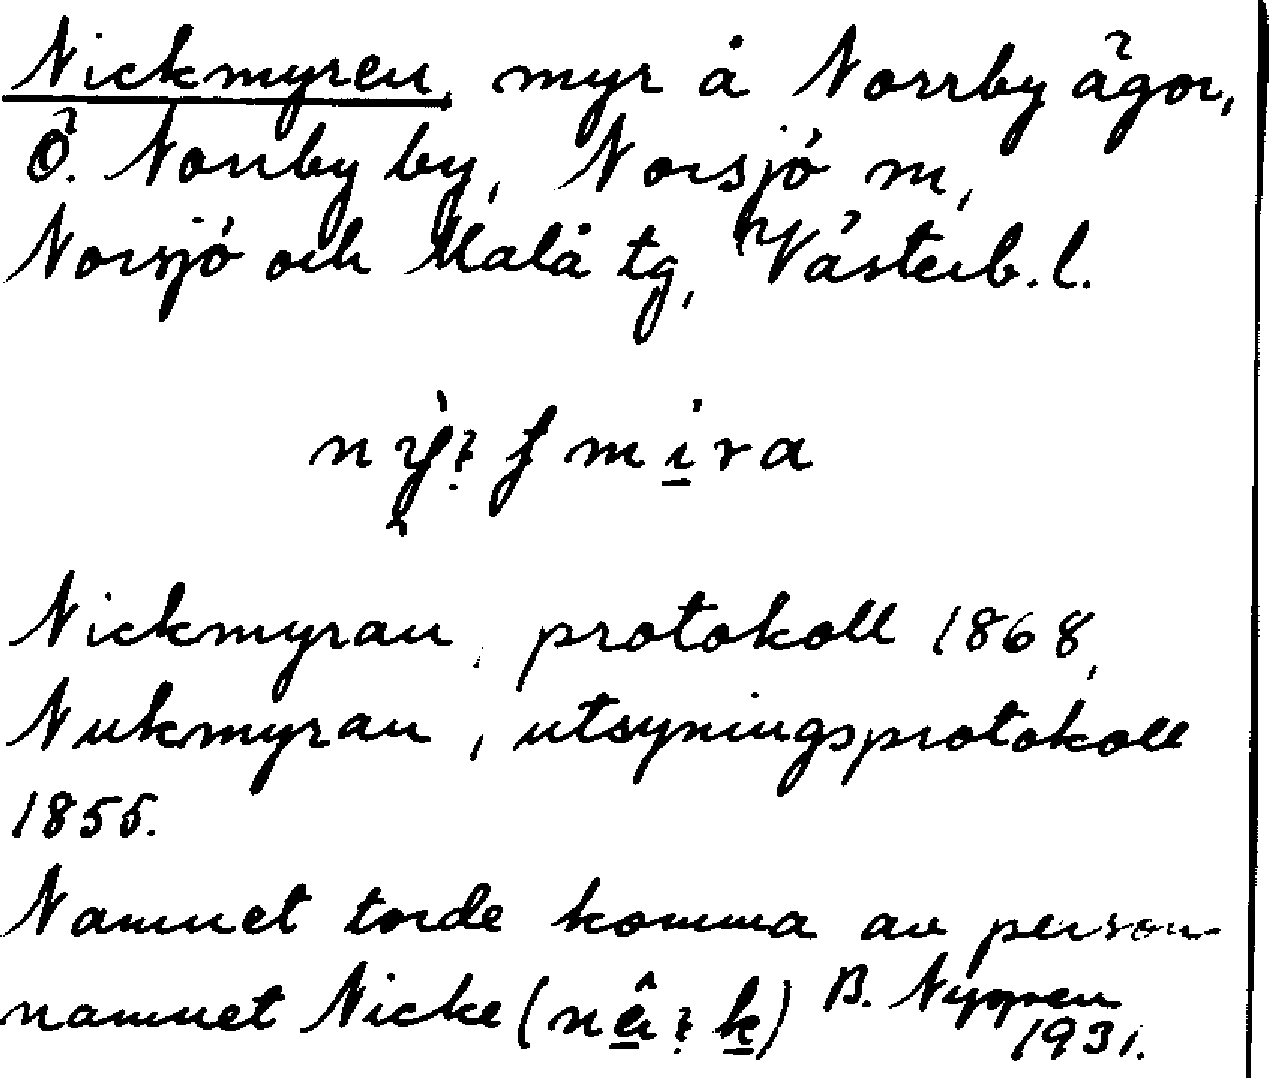 Nickmyren, myr å Norrby ägor,
Ö. Norrby by, Norsjö sn,
Norsjö och Malå tg, Västerb. l.
Nickmyran, protokoll 1868,
Nukmyran, utsyningsprotokoll
1855.
Namnet torde komma av person-
namnet Nicke ( ) B. Nygren
1931.